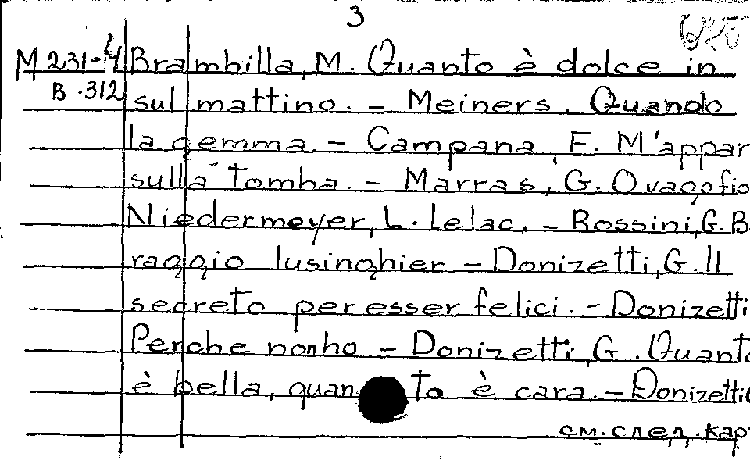 3
M 231-4 Brambilla, M. Quanto è dolce in
B.312 sul mattino. – Meiners. Quando
la gemma. – Campana, E. M'appar
sulla tomba. – Marras, G. O vago fio
Niedermeyer, L. Le lac. – Rossini, G. B
raggio lusinghier – Donizetti, G. Il
secreto per esser felici. – Donizetti
Perche non ho – Donizetti, G. Quanto
è bella, quanto è cara. – Donizetti
см. след. кар